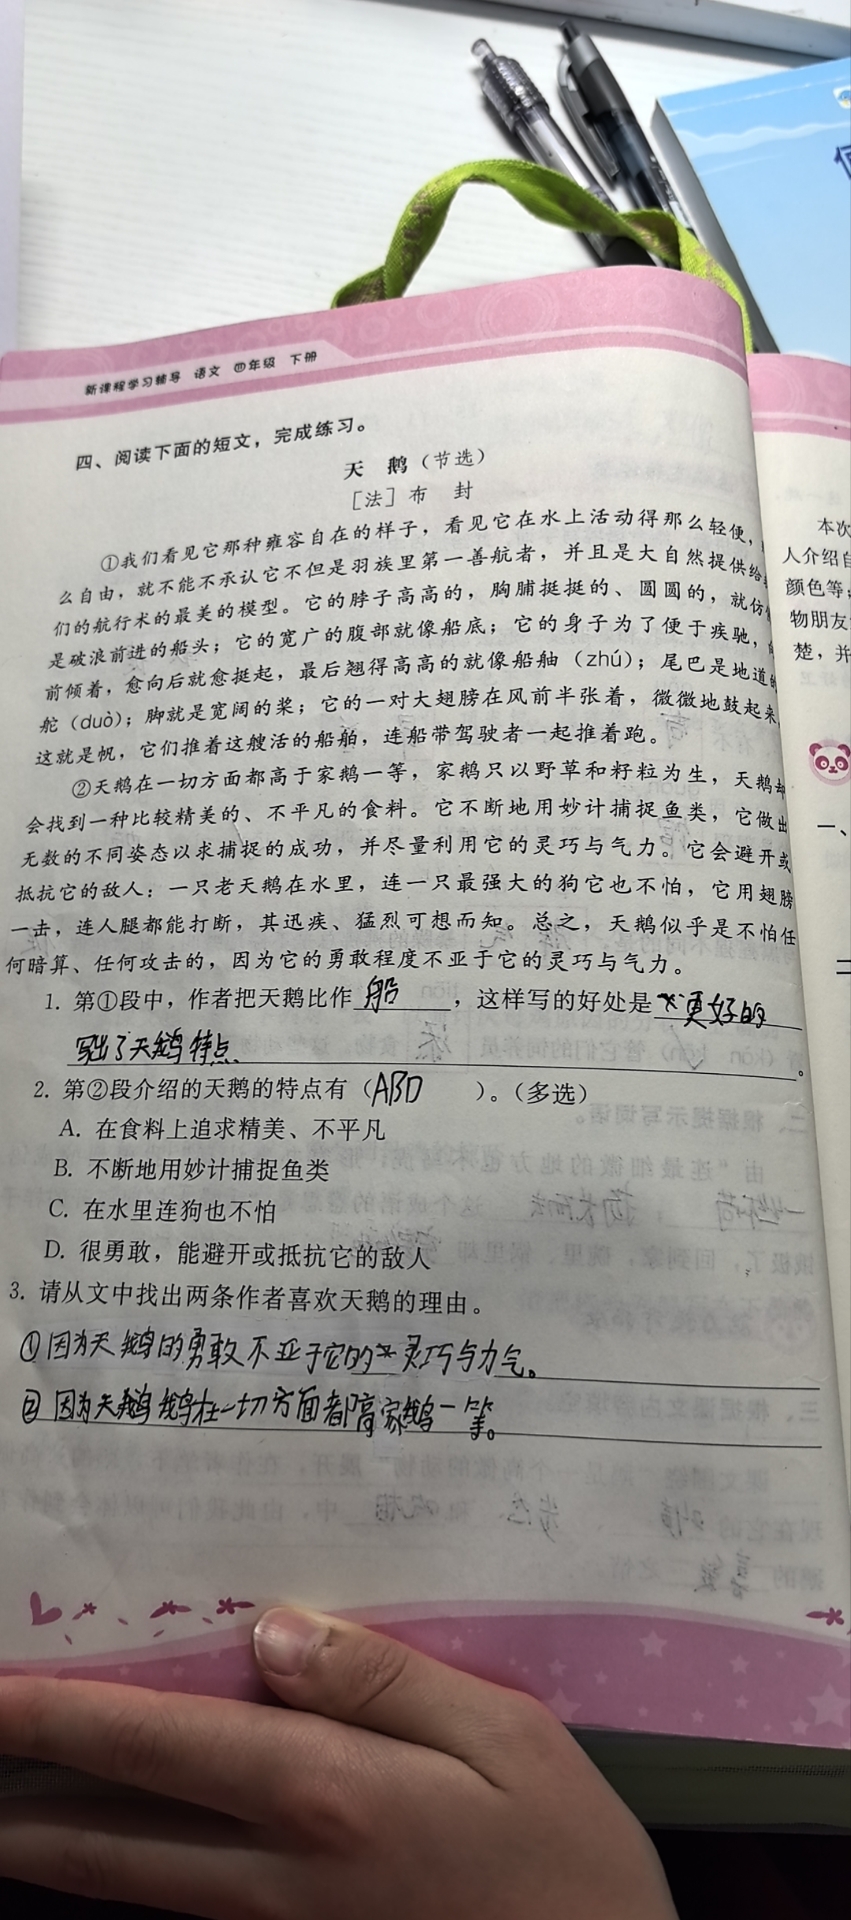 新课程学习辅导 语文 四年级 下册
四、阅读下面的短文，完成练习。
天 鹅（节选）
［法］布 封
①我们看见它那种雍容自在的样子，看见它在水上活动得那么轻便，
么自由，就不能不承认它不但是羽族里第一善航者，并且是大自然提供给
们的航行术的最美的模型。它的脖子高高的，胸脯挺挺的、圆圆的，就仿
是破浪前进的船头；它的宽广的腹部就像船底；它的身子为了便于疾驰，
前倾着，愈向后就愈挺起，最后翘得高高的就像船舳（zhú）；尾巴是地道的
舵（duò）；脚就是宽阔的桨；它的一对大翅膀在风前半张着，微微地鼓起来
这就是帆，它们推着这艘活的船舶，连船带驾驶者一起推着跑。
②天鹅在一切方面都高于家鹅一等，家鹅只以野草和籽粒为生，天鹅却
会找到一种比较精美的、不平凡的食料。它不断地用妙计捕捉鱼类，它做出
无数的不同姿态以求捕捉的成功，并尽量利用它的灵巧与气力。它会避开或
抵抗它的敌人：一只老天鹅在水里，连一只最强大的狗它也不怕，它用翅膀
一击，连人腿都能打断，其迅疾、猛烈可想而知。总之，天鹅似乎是不怕任
何暗算、任何攻击的，因为它的勇敢程度不亚于它的灵巧与气力。
1. 第①段中，作者把天鹅比作 船 ，这样写的好处是 更好的
写出了天鹅特点 。
2. 第②段介绍的天鹅的特点有（ABD ）。（多选）
A. 在食料上追求精美、不平凡
B. 不断地用妙计捕捉鱼类
C. 在水里连狗也不怕
D. 很勇敢，能避开或抵抗它的敌人
3. 请从文中找出两条作者喜欢天鹅的理由。
①因为天鹅的勇敢不亚于它的灵巧与力气。
②因为天鹅在一切方面都高家鹅一等。
本次
人介绍自
颜色等；
物朋友
楚，并
一、
二